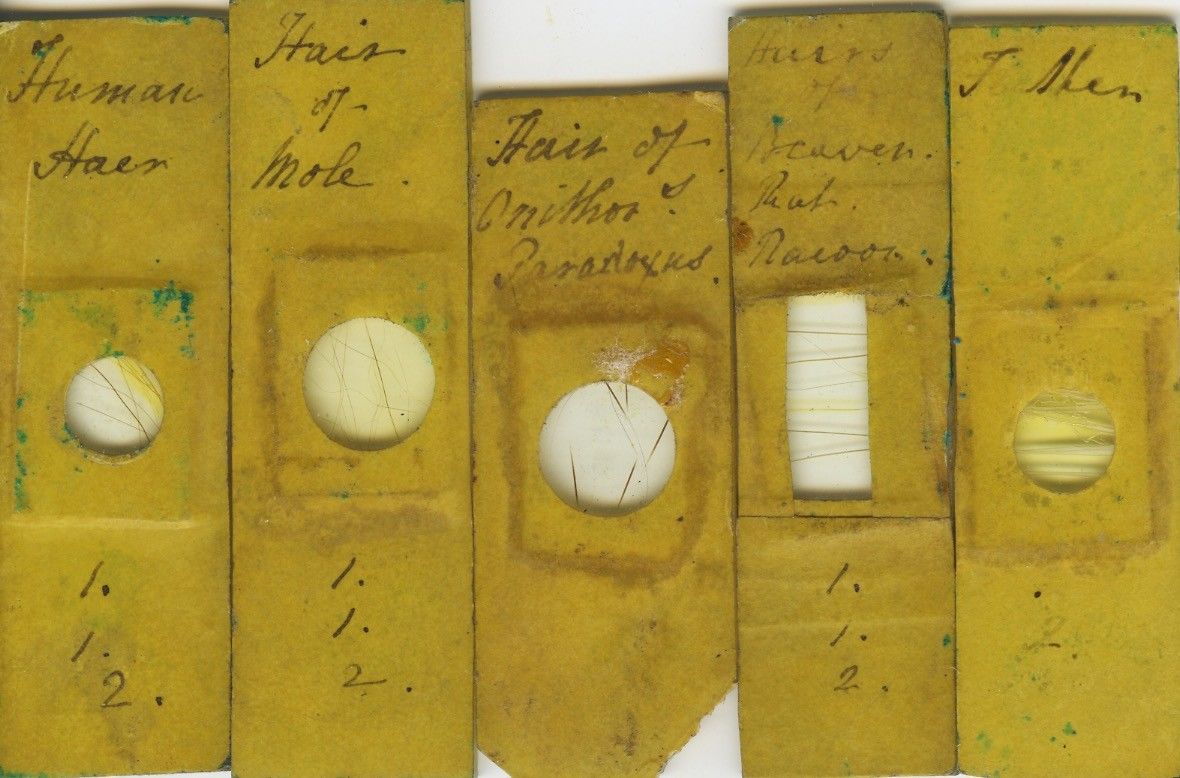 Human
Haer
1.
1.
2.
Hair
of
Mole.
1.
1.
2.
Hair of
Onithor.s
Paradoxus.
Hairs
of
Beaver.
Rat.
Racoon.
1.
1.
2.
2